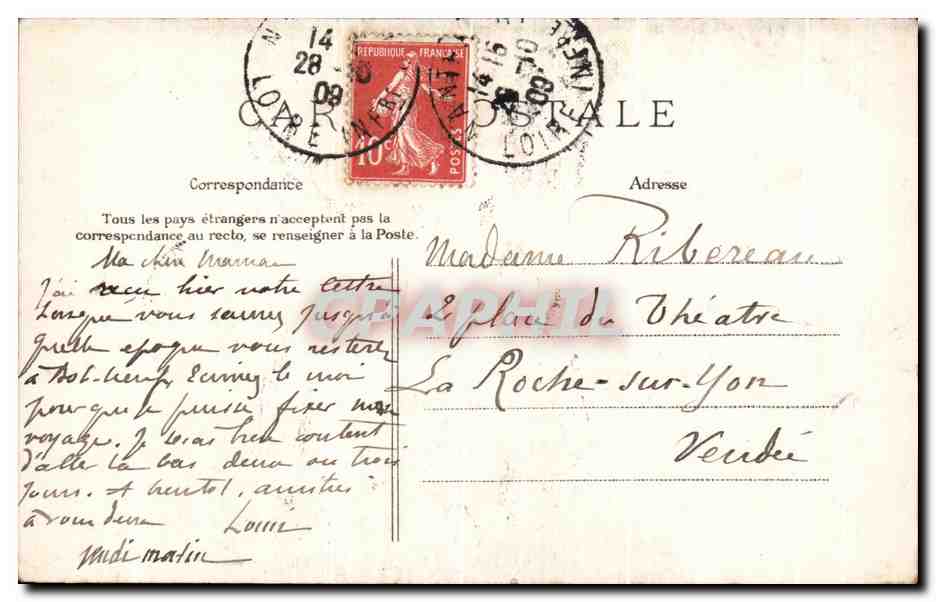 N
14
28 10
09
LOIRE INFRE
REPUBLIQUE FRANÇAISE
10 c
POSTES
14 15
28 10
09
LOIRE INFRE
CARTE POSTALE
Correspondance
Adresse
Tous les pays étrangers n'acceptent pas la
correspondance au recto, se renseigner à la Poste.
Ma chère Maman
J'ai reçu hier votre lettre
Lorsque vous saurez jusqu'à
quelle epoque vous resterez
à Bot-neuf, Ecrivez le moi
pour que je puisse fixer mon
voyage. Je serais bien content
d'aller la bas deux ou trois
jours. A bientot, amitiés
à vous deux Louis
jeudi matin
Madame Ribereau
2 place du Théatre
La Roche-sur-Yon
Vendée
CPAPHIL